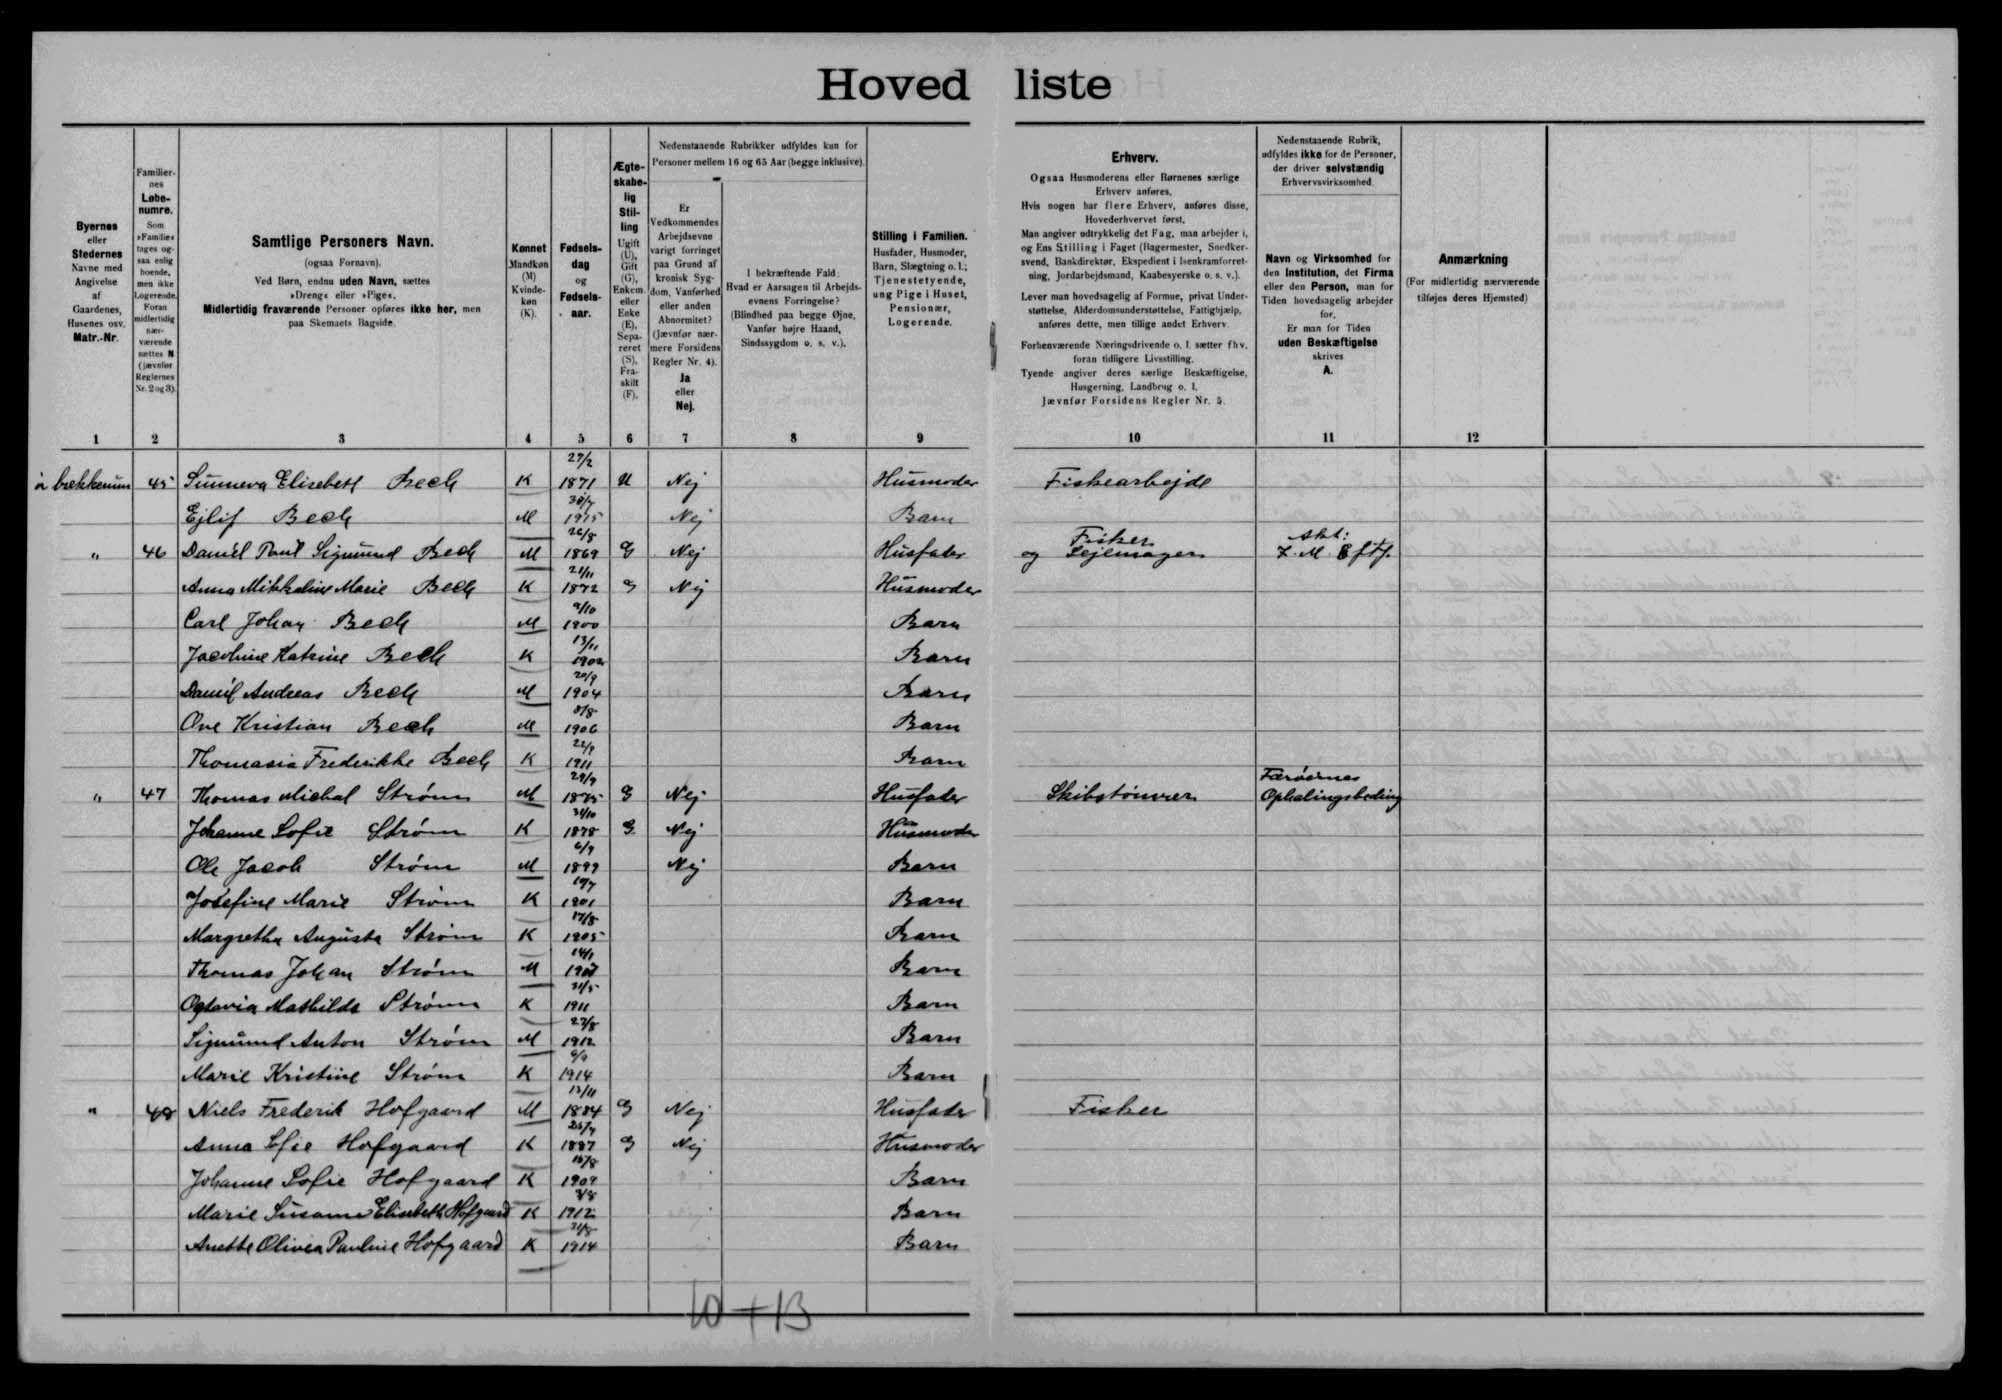 Hoved liste
Byernes eller Stedernes Navne med Angivelse af Gaardenes, Husenes osv. Matr.-Nr.
Familiernes Løbenumre. Som »Familie« tages ogsaa enlig boende, men ikke Logerende. Foran midlertidig nærværende sættes N (jævnfør Reglernes Nr. 2 og 3).
Samtlige Personers Navn. (ogsaa Fornavn). Ved Børn, endnu uden Navn, sættes »Dreng« eller »Pige«. Midlertidig fraværende Personer opføres ikke her, men paa Skemaets Bagside.
Kønnet Mandkøn (M) Kvindekøn (K).
Fødselsdag og Fødselsaar.
Ægteskabelig Stilling Ugift (U), Gift (G), Enkem. eller Enke (E), Separeret (S), Fraskilt (F).
Nedenstaaende Rubrikker udfyldes kun for Personer mellem 16 og 65 Aar (begge inklusive).
Er Vedkommendes Arbejdsevne varigt forringet paa Grund af kronisk Sygdom, Vanførhed eller anden Abnormitet? (Jævnfør nærmere Forsidens Regler Nr. 4). Ja eller Nej.
I bekræftende Fald: Hvad er Aarsagen til Arbejdsevnens Forringelse? (Blindhed paa begge Øjne, Vanfør højre Haand, Sindssygdom o. s. v.).
Stilling i Familien. Husfader, Husmoder, Barn, Slægtning o. l.; Tjenestetyende, ung Pige i Huset, Pensionær, Logerende.
Erhverv.
Ogsaa Husmoderens eller Børnenes særlige Erhverv anføres.
Hvis nogen har flere Erhverv, anføres disse, Hovederhvervet først.
Man angiver udtrykkelig det Fag, man arbejder i, og Ens Stilling i Faget (Bagermester, Snedkersvend, Bankdirektør, Ekspedient i Isenkramforretning, Jordarbejdsmand, Kaabesyerske o. s. v.).
Lever man hovedsagelig af Formue, privat Understøttelse, Alderdomsunderstøttelse, Fattighjælp, anføres dette, men tillige andet Erhverv.
Forhenværende Næringsdrivende o. l. sætter fhv. foran tidligere Livsstilling.
Tyende angiver deres særlige Beskæftigelse, Husgerning, Landbrug o. l.
Jævnfør Forsidens Regler Nr. 5.
Nedenstaaende Rubrik, udfyldes ikke for de Personer, der driver selvstændig Erhvervsvirksomhed.
Navn og Virksomhed for den Institution, det Firma eller den Person, man for Tiden hovedsagelig arbejder for.
Er man for Tiden uden Beskæftigelse skrives A.
Anmærkning (For midlertidig nærværende tilføjes deres Hjemsted)
1 2 3 4 5 6 7 8 9 10 11 12
45 Sunneva Elisebett Bech K 27/2 1871 U Nej Husmoder Fiskearbejde
Ejlif Bech M 1915 Nej Barn
" 46 Daniel Paul Sigmund Bech M 26/8 1869 G Nej Husfader Fisker og Sejlmager
Anna Mikkaline Marie Bech K 21/11 1872 G Nej Husmoder
Carl Johan Bech M 9/10 1900 Barn
Jacobine Katrine Bech K 13/11 1902 Barn
Daniel Andreas Bech M 20/9 1904 Barn
Ove Kristian Bech M 8/8 1906 Barn
Thomasia Frederikke Bech K 22/9 1911 Barn
" 47 Thomas Michal Strøm M 29/9 1875 G Nej Husfader Skibstømrer Færøernes Ophalingsbeding
Johanne Sofie Strøm K 1878 G Nej Husmoder
Ole Jacob Strøm M 6/9 1899 Nej Barn
Josefine Marie Strøm K 1901 Barn
Margretha Augusta Strøm K 17/8 1905 Barn
Thomas Johan Strøm M 14/1 Barn
Octavia Mathilda Strøm K 31/5 1911 Barn
Sigmund Anton Strøm M 27/8 1912 Barn
Marie Kristine Strøm K 1914 Barn
" 48 Niels Frederik Hofgaard M 13/11 1884 G Nej Husfader Fisker
Anna Sofie Hofgaard K 1887 G Nej Husmoder
Johanne Sofie Hofgaard K 16/8 1909 Barn
Marie Susanne Elisabeth Hofgaard K 1912 Barn
Anette Olivia Pauline Hofgaard K 31/8 1914 Barn
10 + 13